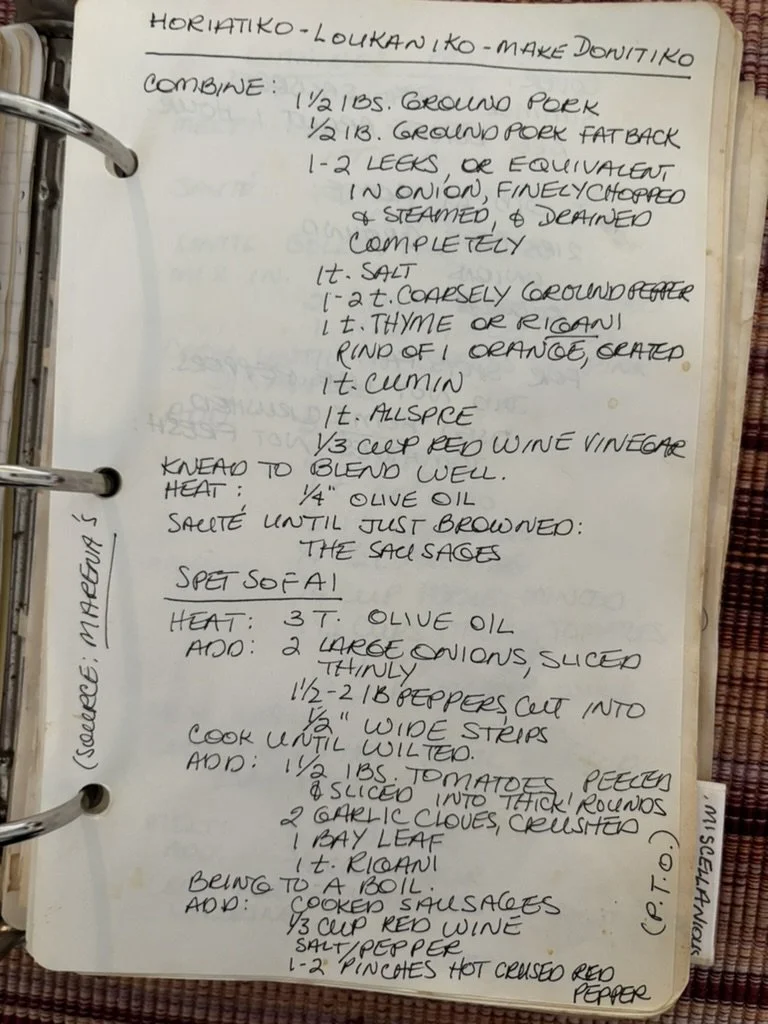 HORIATIKO-LOUKANIKO-MAKEDONITIKO
COMBINE: 1½ lBS. GROUND PORK
½ lB. GROUND PORK FATBACK
1-2 LEEKS, OR EQUIVALENT
IN ONION, FINELY CHOPPED
& STEAMED, & DRAINED
COMPLETELY
1 t. SALT
1-2 t. COARSELY GROUND PEPPER
1 t. THYME OR RIGANI
RIND OF 1 ORANGE, GRATED
1 t. CUMIN
1 t. ALLSPICE
1/3 CUP RED WINE VINEGAR
KNEAD TO BLEND WELL.
HEAT: ¼" OLIVE OIL
SAUTÉ UNTIL JUST BROWNED:
THE SAUSAGES
SPETSOFAI
HEAT: 3 T. OLIVE OIL
ADD: 2 LARGE ONIONS, SLICED
THINLY
1½-2 lB PEPPERS, CUT INTO
½" WIDE STRIPS
COOK UNTIL WILTED.
ADD: 1½ lBS. TOMATOES PEELED
& SLICED INTO THICK ROUNDS
2 GARLIC CLOVES, CRUSHED
1 BAY LEAF
1 t. RIGANI
BRING TO A BOIL.
ADD: COOKED SAUSAGES
1/3 CUP RED WINE
SALT/PEPPER
1-2 PINCHES HOT CRUSED RED
PEPPER
(SOURCE: MARENA'S
(P.T.O.)
MISCELLANIOUS